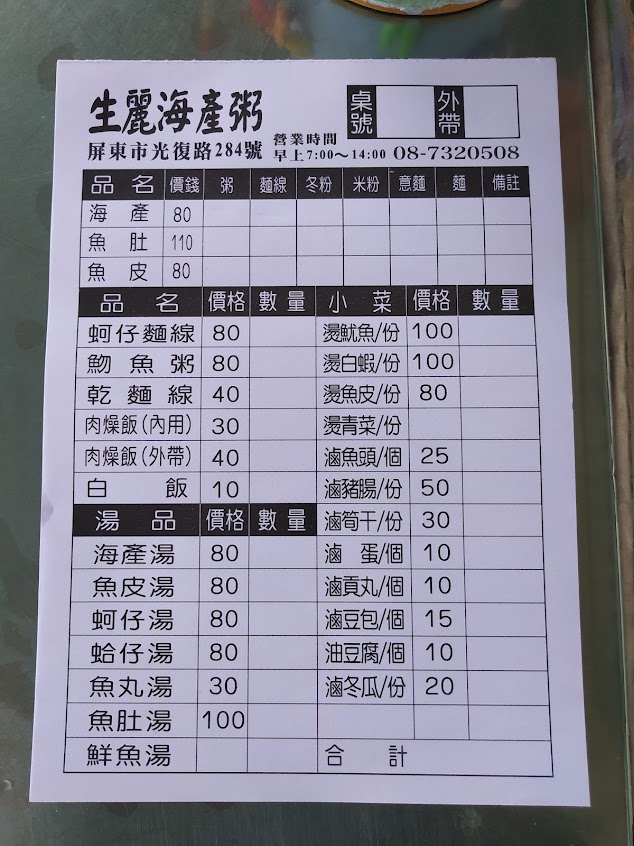 生麗海產粥
桌號 外帶
屏東市光復路284號 營業時間 早上7:00～14:00 08-7320508
品名 價錢 粥 麵線 冬粉 米粉 意麵 麵 備註
海產 80
魚肚 110
魚皮 80
品名 價格 數量 小菜 價格 數量
蚵仔麵線 80 燙魷魚/份 100
魩魚粥 80 燙白蝦/份 100
乾麵線 40 燙魚皮/份 80
肉燥飯(內用) 30 燙青菜/份
肉燥飯(外帶) 40 滷魚頭/個 25
白飯 10 滷豬腸/份 50
湯品 價格 數量 滷筍干/份 30
海產湯 80 滷蛋/個 10
魚皮湯 80 滷貢丸/個 10
蚵仔湯 80 滷豆包/個 15
蛤仔湯 80 油豆腐/個 10
魚丸湯 30 滷冬瓜/份 20
魚肚湯 100
鮮魚湯 合計